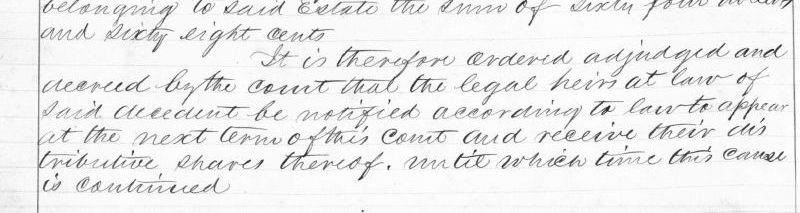 belonging to said Estate the sum of sixty four dollars
and sixty eight cents
It is therefore ordered adjudged and
decreed by the court that the legal heirs at law of
said decedent be notified according to law to appear
at the next term of this court and receive their dis
tributive shares thereof. until which time this cause
is continued